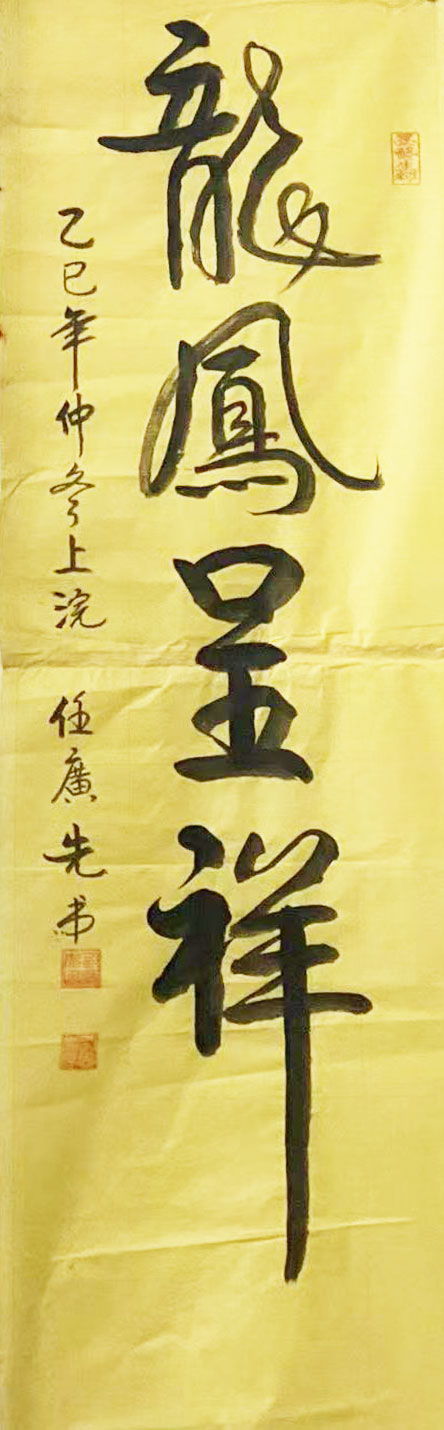 龍鳳呈祥
乙巳年仲冬上浣 任廣先书